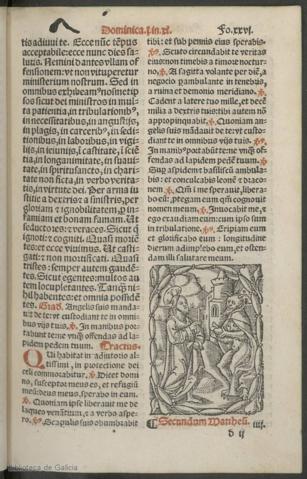 Dominica.j.in.xl.
Fo.xxvj.
tis adiuui te. Ecce nūc tēpus
acceptabile: ecce nunc dies sa-
lutis. Nemini dantes vllam of
fensionem: vt non vituperetur
ministerium nostrum. Sed in
omnibus exhibeam⁹ nosmetip
sos sicut dei ministros in mul-
ta patientia, in tribulationib⁹,
in necessitatibus, in angustijs,
in plagis, in carcerib⁹, in sedi-
tionibus, in laboribus, in vigi-
lijs, in ieiunijs, ī castitate, ī sciē
tia, in longanimitate, in suaui-
tate, in spiritu sancto, in chari-
tate non ficta, in verbo verita-
tis, in virtute dei. Per arma iu
stitie a dextris et a sinistris, per
gloriam et ignobilitatem, per in-
famiam et bonam famam. Ut
seductores: et veraces. Sicut q̄
ignoti: et cogniti. Quasi moriē
tes: et ecce viuimus. Ut casti-
gati: et non mortificati. Quasi
tristes: semper autem gauden-
tes. Sicut egentes: multos au
tem locupletantes. Tanq̄ ni-
hil habentes: et omnia possidē
tes. Grad. Angelis suis manda-
uit de te: vt custodiant te in om
nibus vijs tuis. ℣. In manibus por-
tabunt te: ne vnq̄ offendas ad la-
pidem pedem tuum. Tractus.
Qui habitat in adiutorio al-
tissimi, in protectione dei
celi commorabitur. ℣. Dicet domi
no, susceptor meus es, et refugiū
meū: deus meus, sperabo in eum.
℣. Quoniam ipse liberauit me de
laqueo venātium, et a verbo aspe-
ro. ℣. Scapulis suis obumbrabit
tibi: et sub pennis eius sperabis.
℣. Scuto circundabit te veritas
eius: non timebis a timore noctur-
no. ℣. A sagitta volante per diē, a
negocio pambulante in tenebris,
a ruina et demonio meridiano. ℣.
Cadent a latere tuo mille, et decē
milia a dextris tuis: tibi autem nō
appropinquabit. ℣. Quoniam an-
gelis suis mādauit de te: vt custo-
diant te in omnibus vijs tuis. ℣.
In manib⁹ portabūt te: ne vnq̄ of-
fendas ad lapidem pedē tuum. ℣.
Sup aspidem et basiliscū ambula-
bis: et conculcabis leonē et draco-
nem. ℣. Qm̄ ī me sperauit, libera-
bo eū: ptegam eum qm̄ cognouit
nomen meum. ℣. Inuocabit me, et
ego exaudiam eum: cum ipso sum
in tribulatione. ℣. Eripiam eum
et glorificabo eum: longitudine
dierum adimplebo eum, et osten-
dam illi salutare meum.
Secundum Mattheū. iiij.
d ij
Biblioteca de Galicia